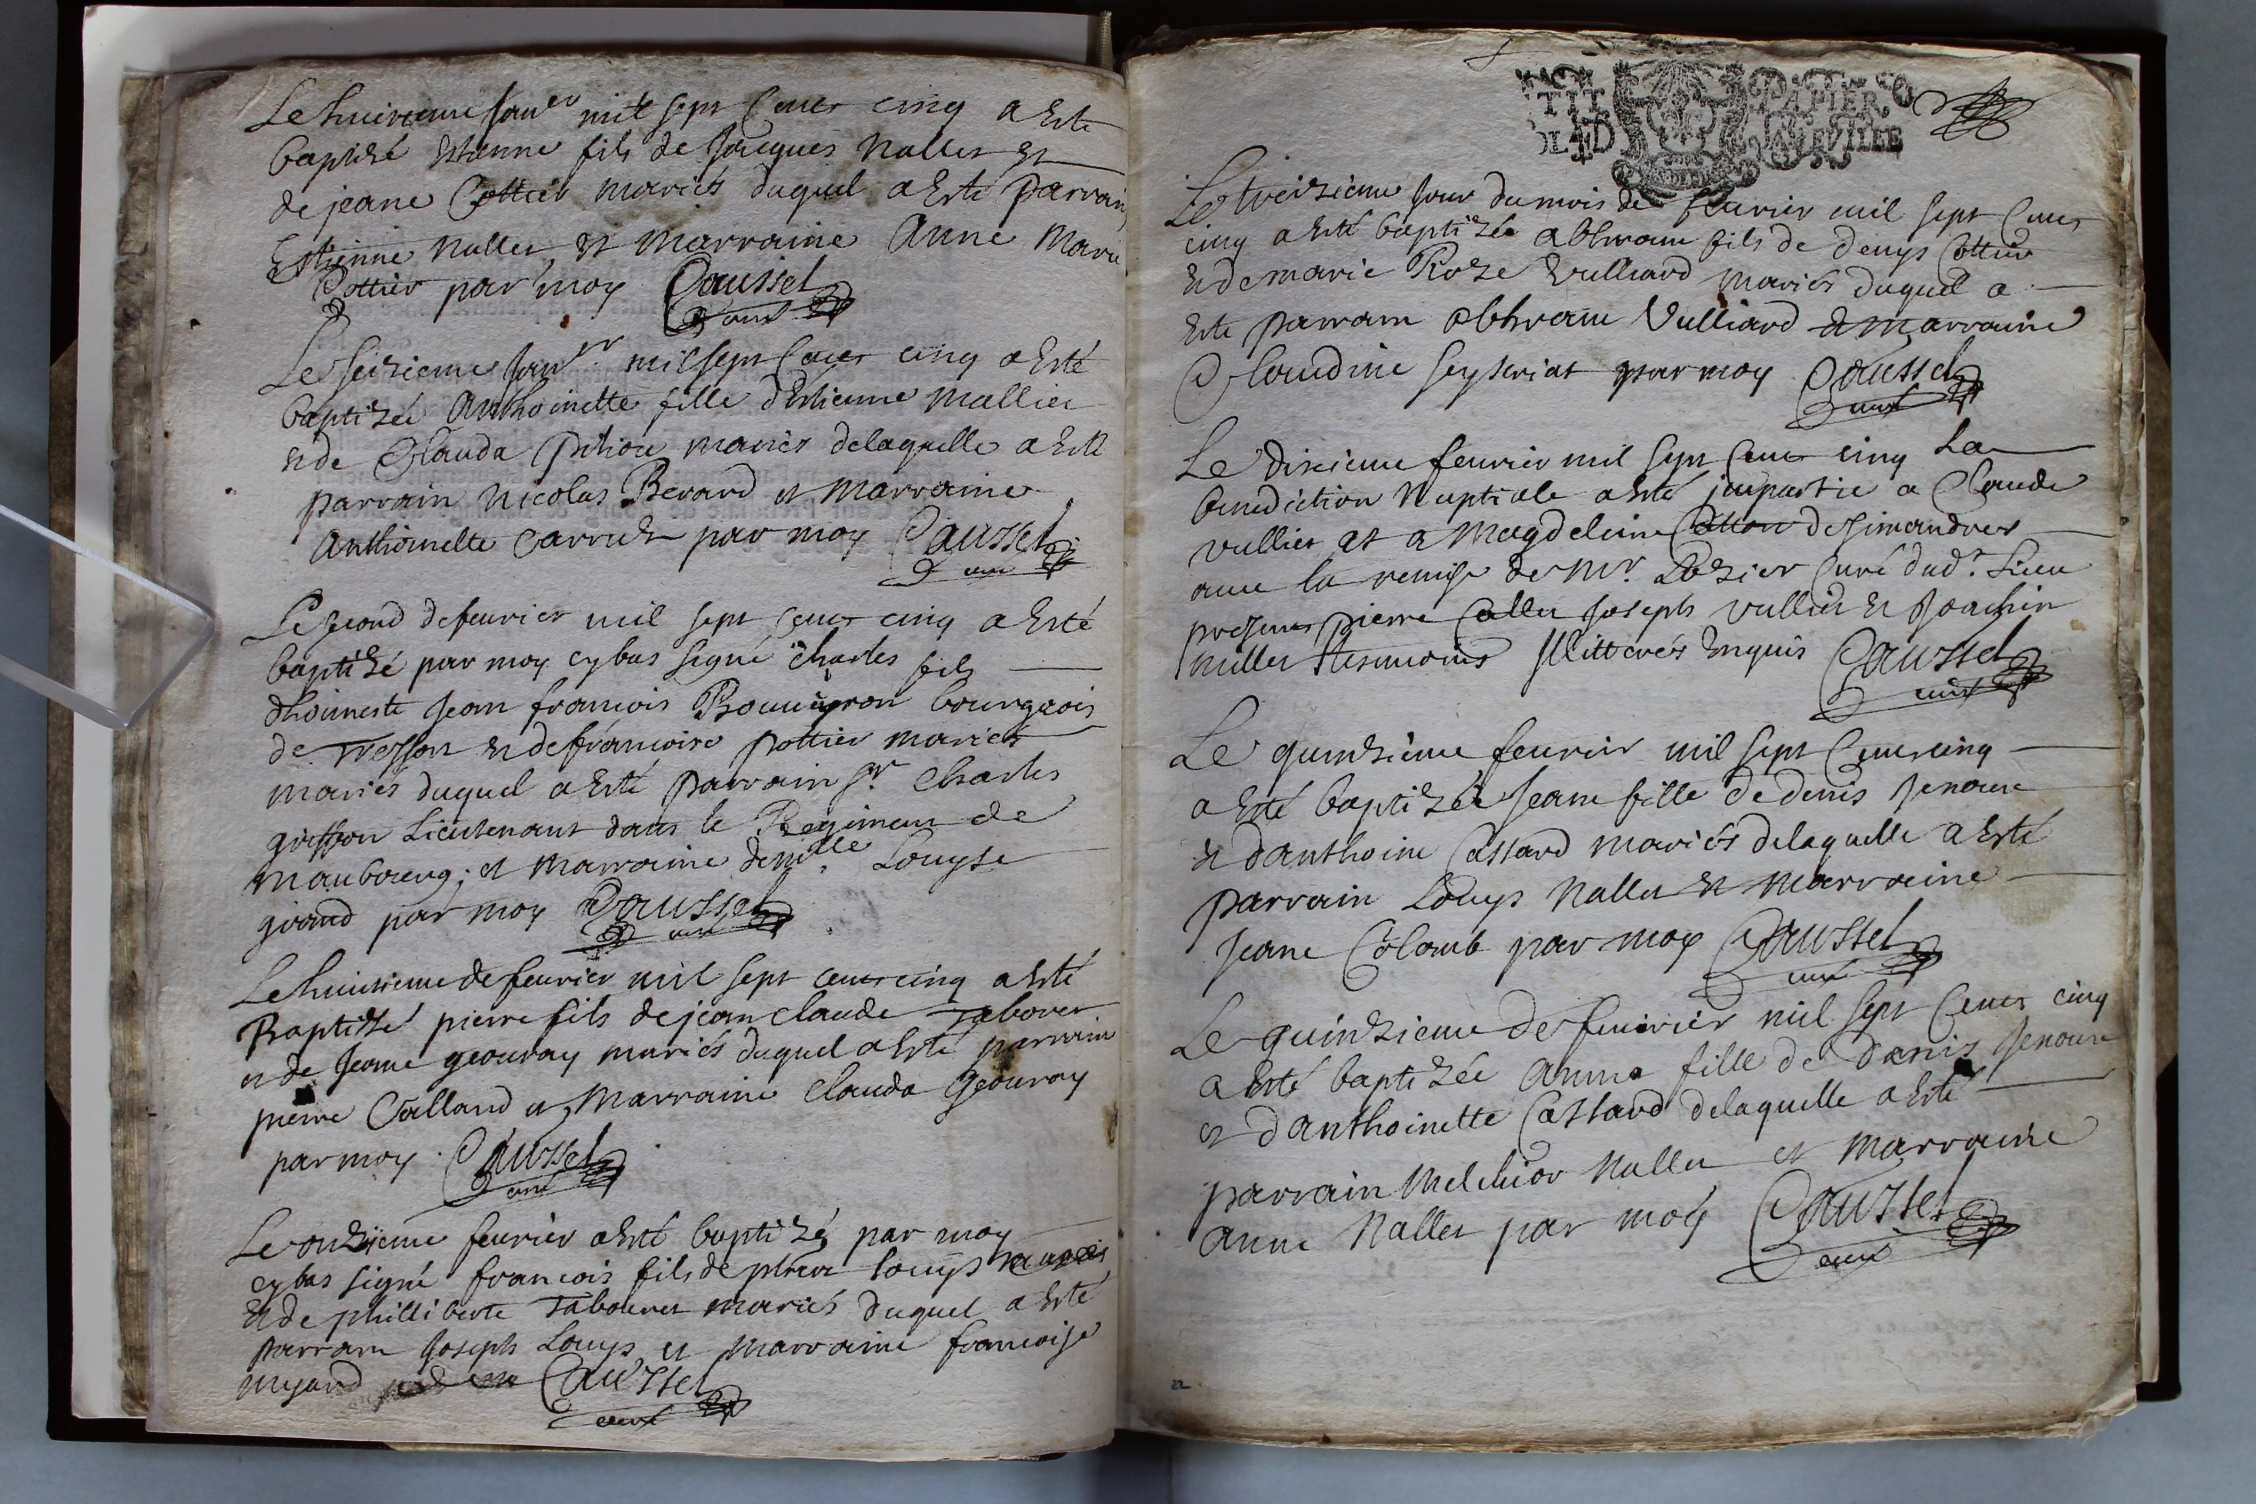 Le huitieme Janer mil sept Cents cinq a Esté
baptizé Estienne fils de Jacques Nallet Et
de jeane Cottier mariés duquel a Esté parrain
Estienne Nallet Et Marraine Anne Marie
Cottier par moy Caussel
curé
Le seizieme Janvr mil sept Cents cinq a Esté
baptizée Anthoinette fille d'Estienne Mallier
Et de Clauda pitiou mariés delaquelle a Esté
parrain Nicolas Berard et Marraine
Anthoinette Carruet par moy Caussel
curé
Le second de feurier mil sept cents cinq a Esté
baptizé par moy cy bas signé Charles fils
d'honneste Jean francois
bourgeois
de Treffort et de francoise pottier mariés
mariés duquel a Esté parrain Sr Charles
griffon Lieutenant dans le Regiment de
Maubourg; et Marraine demlle Louyse
girand par moy Caussel
curé
Le huitieme de feurier mil sept cents cinq a Esté
Baptizé pierre fils de jean claude Tabouret
et de Jeane geouray mariés duquel a Esté parrain
pierre Calland et Marraine Clauda geouray
par moy Caussel
curé
Le onzieme feurier a Esté baptizé par moy
cy bas signé francois fils de pierre Louys
Et de philliberte Tabouret mariés duquel a Esté
parrain Joseph Louys et Marraine francoise
mejard Caussel
curé
PAPIER
Le treizieme Jour du mois de feurier mil sept Cents
cinq a Esté baptizée Abhram fils de denys Cottier
Et de marie Roze Vulliard mariés duquel a
Esté parrain Abhram Vulliard et Marraine
Claudine seyseriat par moy Caussel
curé
Le dixieme feurier mil sept Cents cinq La
benediction Nuptiale a Esté impartie a Claude
vulliet et a Magdeleine Catton de simandres
auec la remise de Mr. Lozier Curé dud. Lieu
presents pierre Callet Joseph vulliet et Joachin
Nallet tesmoins Illitterés Enquis Caussel
curé
Le quinzieme feurier mil sept Cents cinq
a Esté baptizée Jeane fille de denis Jenoure
et d'anthoine Cassard mariés delaquelle a Esté
parrain Louys Nallet et Marraine
Jeane Colomb par moy Caussel
curé
Le quinzieme de feurier mil sept Cents cinq
a Esté baptizée Anne fille de denis Jenoure
et d'anthoinette Cassard delaquelle a Esté
parrain Melchior Nallet et Marraine
Anne Nallet par moy Caussel
curé